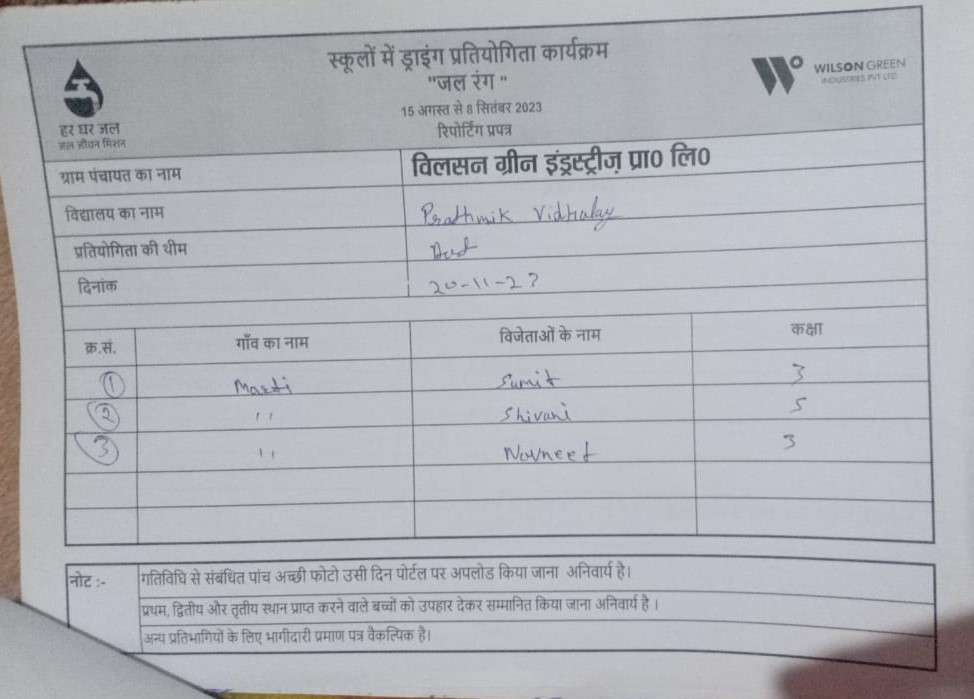 स्कूलों में ड्राइंग प्रतियोगिता कार्यक्रम
"जल रंग "
15 अगस्त से 8 सितंबर 2023
रिपोर्टिंग प्रपत्र
हर घर जल
जल जीवन मिशन
WILSON GREEN
INDUSTRIES PVT LTD
ग्राम पंचायत का नाम विलसन ग्रीन इंडस्ट्रीज़ प्रा0 लि0
विद्यालय का नाम Prathmik Vidhalay
प्रतियोगिता की थीम
दिनांक 20-11-23
क्र.सं. गाँव का नाम विजेताओं के नाम कक्षा
1 Sumit 3
2 " Shivani 5
3 " Navneet 3
नोट :- गतिविधि से संबंधित पांच अच्छी फोटो उसी दिन पोर्टल पर अपलोड किया जाना अनिवार्य है।
प्रथम, द्वितीय और तृतीय स्थान प्राप्त करने वाले बच्चों को उपहार देकर सम्मानित किया जाना अनिवार्य है ।
अन्य प्रतिभागियों के लिए भागीदारी प्रमाण पत्र वैकल्पिक है।